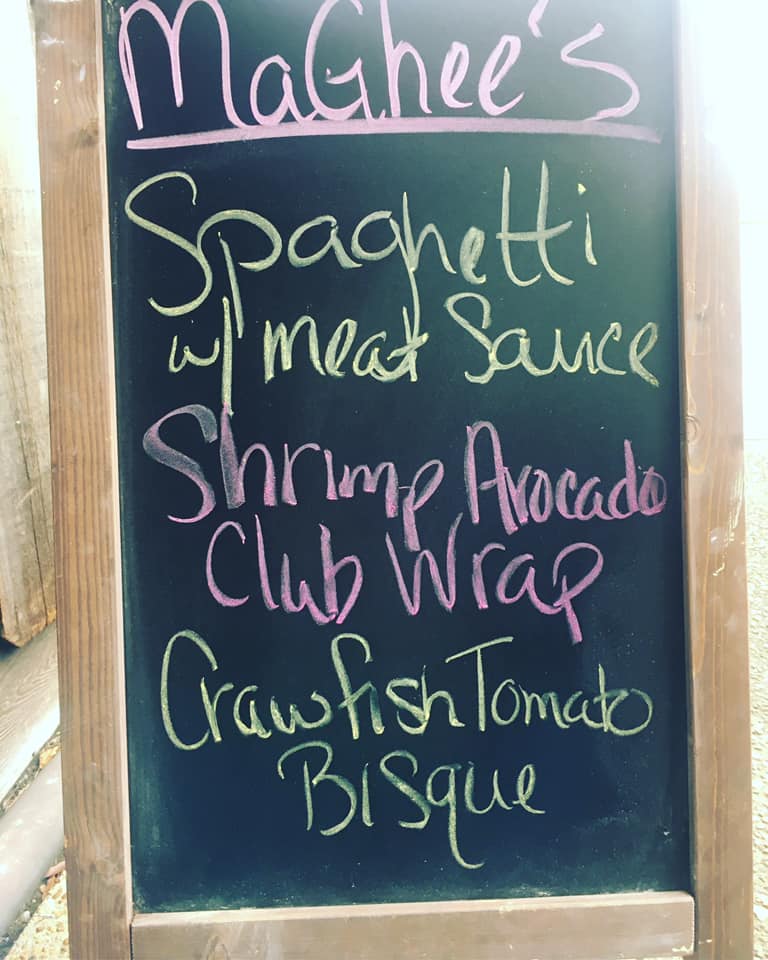 MaGhee's
Spaghetti
w/ meat Sauce
Shrimp Avocado
Club Wrap
Crawfish Tomato
Bisque